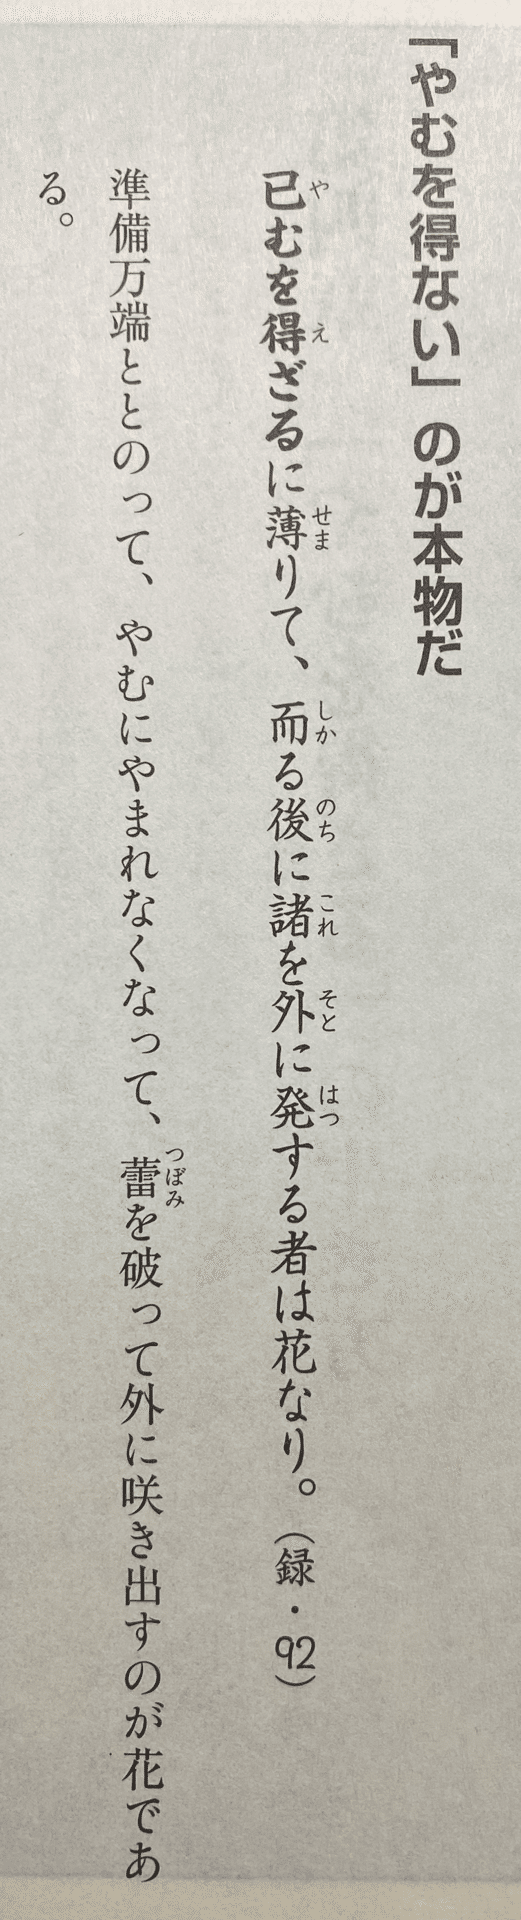 「やむを得ない」のが本物だ
已むを得ざるに薄りて、而る後に諸を外に発する者は花なり。（録・92）
準備万端ととのって、やむにやまれなくなって、蕾を破って外に咲き出すのが花であ
る。